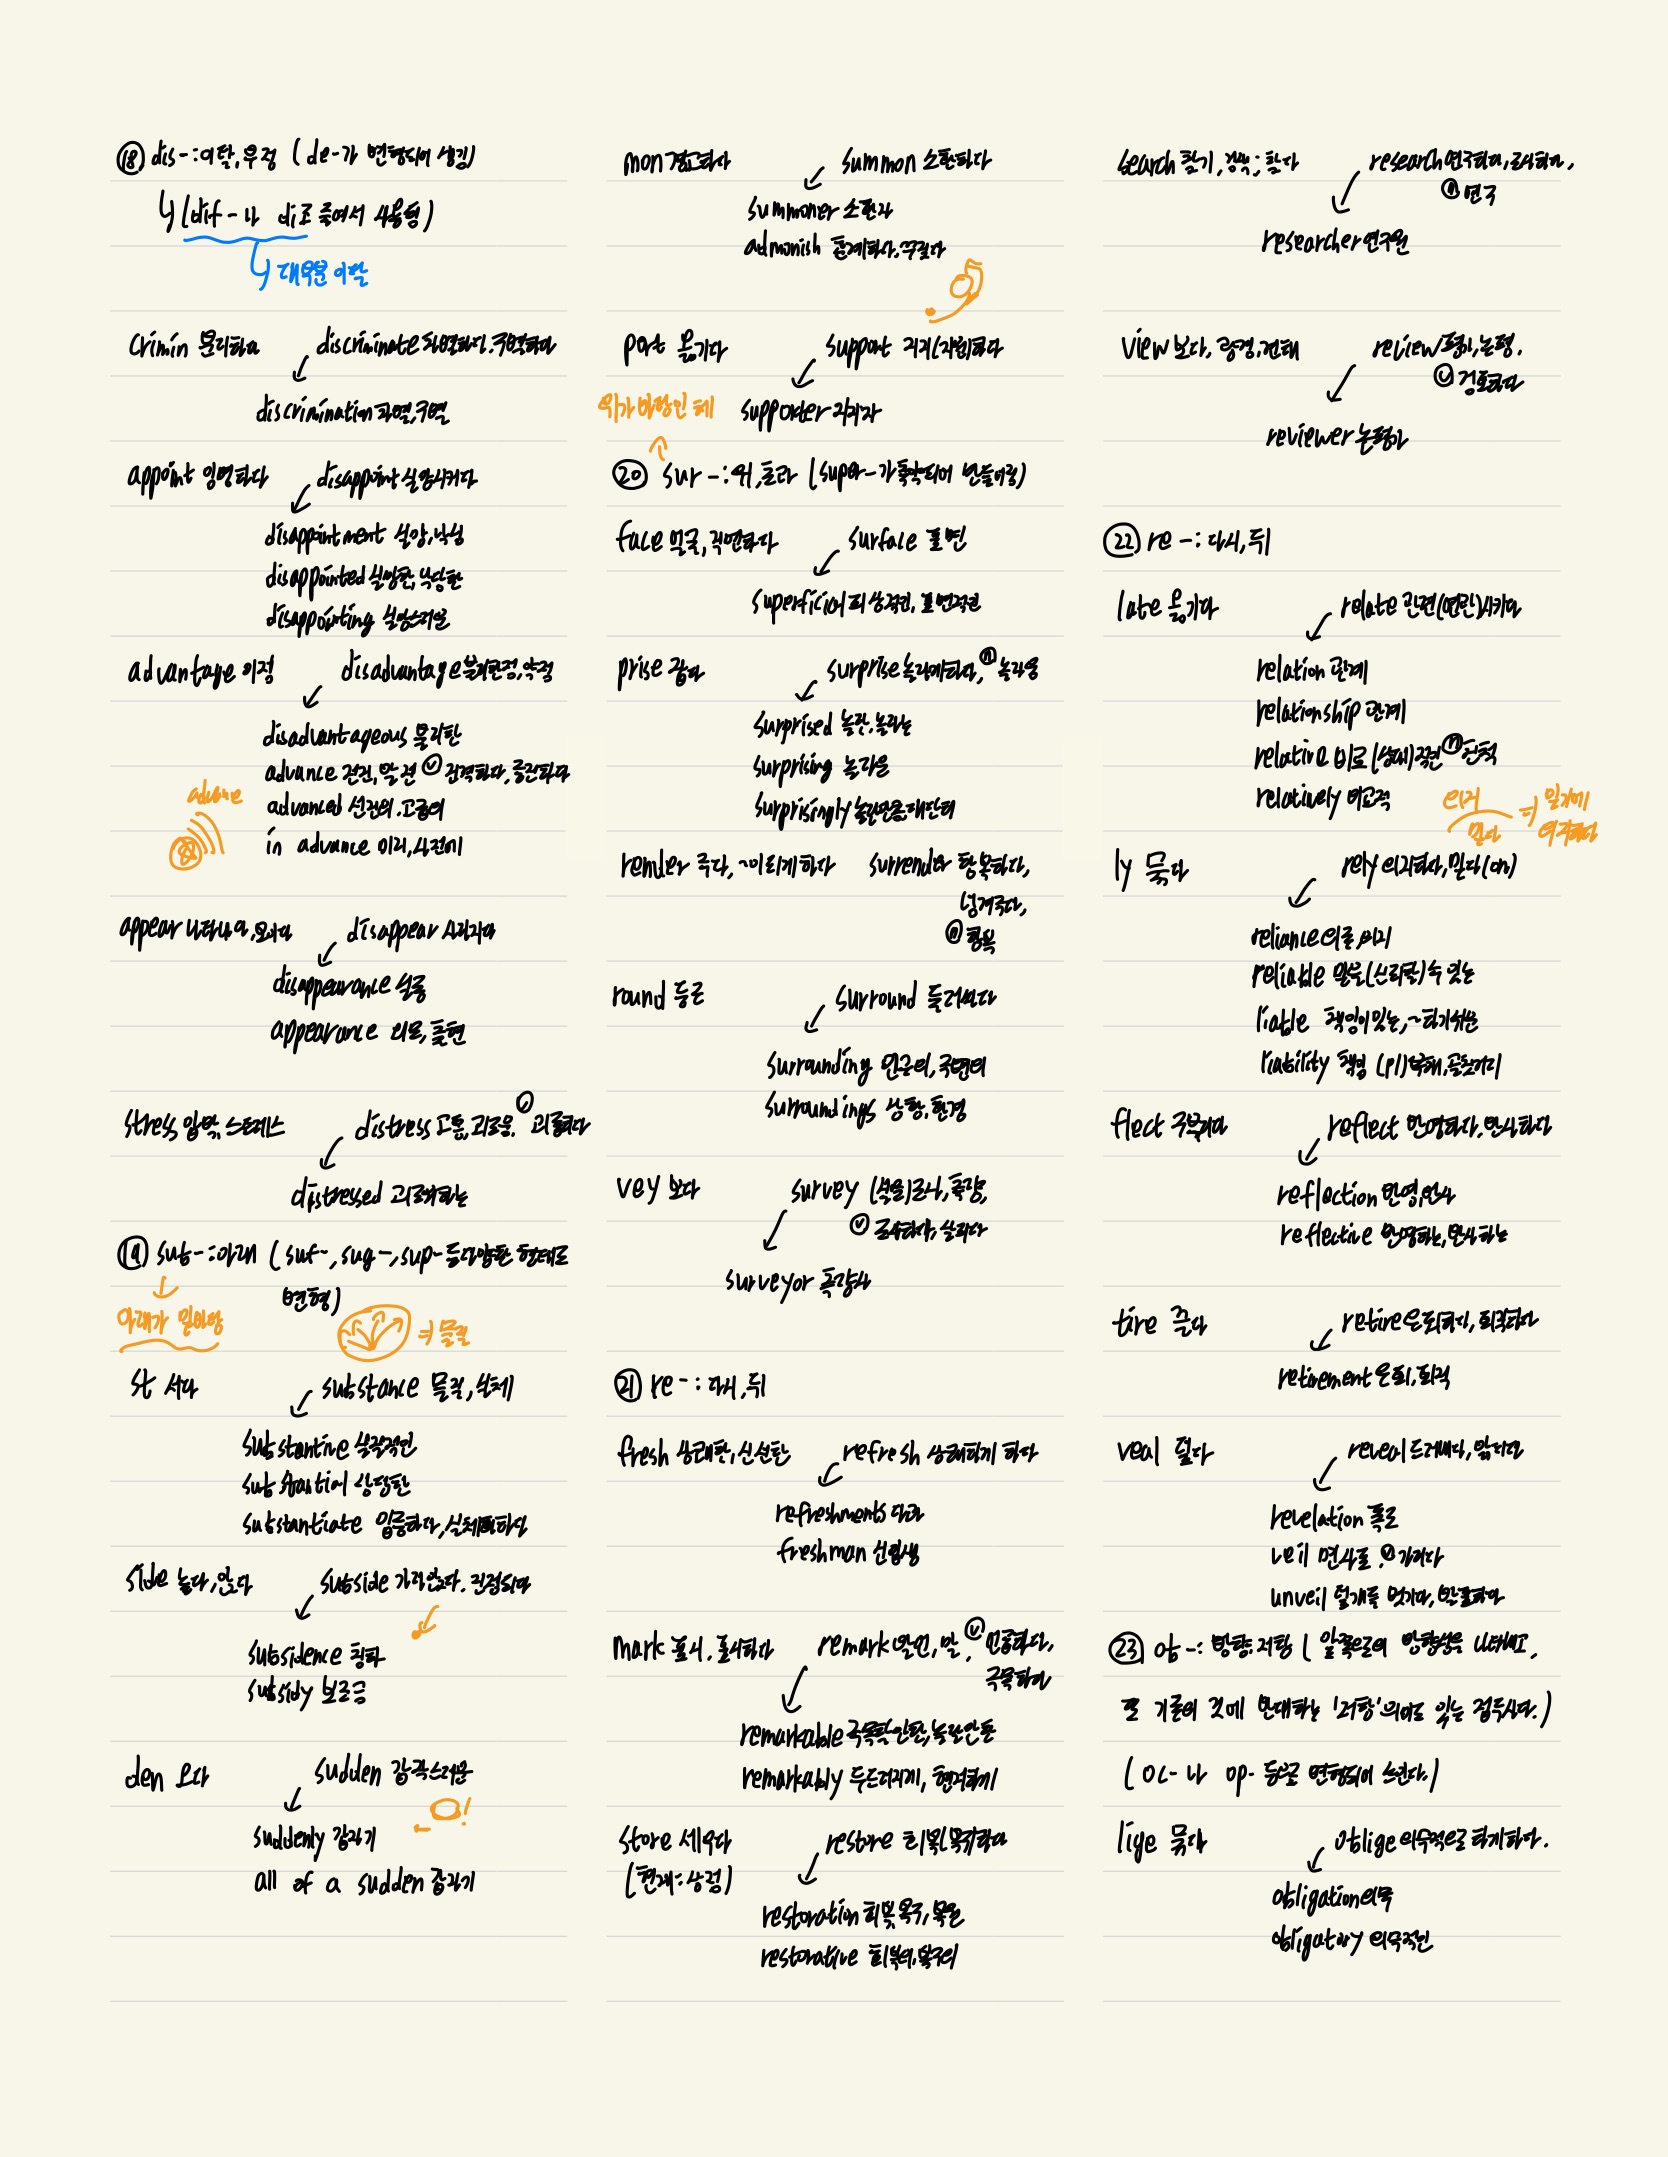 ⑱ dis-: 이탈, 부정 (de-가 변형되어 생김)
↳ (dif-나 di로 줄여서 사용됨)
↳ 대부분 이탈
crimin 분리하다
discriminate 차별하다, 구별하다
discrimination 차별, 구별
appoint 임명하다
disappoint 실망시키다
disappointment 실망, 낙심
disappointed 실망한, 낙담한
disappointing 실망스러운
advantage 이점
disadvantage 불리한 점, 약점
disadvantageous 불리한
advance 전진, 발전 ⓥ 진격하다, 증진하다
advanced 선진의, 고급의
in advance 미리, 사전에
advance
appear 나타나다, 보이다
disappear 사라지다
disappearance 실종
appearance 외모, 출현
stress 압박, 스트레스
distress 고통, 괴로움, ⓥ 괴롭히다
distressed 괴로워하는
⑲ sub-: 아래 (suf-, sug-, sup- 등 다양한 형태로
변형)
아래가 밑바탕
⇒ 물질
st 서다
substance 물질, 실체
substantive 실질적인
substantial 상당한
substantiate 입증하다, 실체화하다
side 눕다, 앉다
subside 가라앉다, 진정되다
subsidence 침하
subsidy 보조금
den 오다
sudden 갑작스러운
!
suddenly 갑자기
all of a sudden 갑자기
mon 경고하다
summon 소환하다
summoner 소환자
admonish 훈계하다, 꾸짖다
port 옮기다
support 지지(지원)하다
supporter 지지자
위가 바탕인 데
⑳ sur-: 위, 초과 (super-가 축약되어 만들어짐)
face 얼굴, 직면하다
surface 표면
superficial 피상적인, 표면적인
prise 잡다
surprise 놀라게 하다, ⓝ 놀라움
surprised 놀란, 놀라는
surprising 놀라운
surprisingly 놀랄만큼, 대단히
render 주다, ~이 되게 하다
surrender 항복하다,
넘겨주다,
ⓝ 항복
round 둥근
surround 둘러싸다
surrounding 인근의, 주변의
surroundings 상황, 환경
vey 보다
survey (설문)조사, 측량,
ⓥ 조사하다, 살피다
surveyor 측량사
㉑ re-: 다시, 뒤
fresh 상쾌한, 신선한
refresh 상쾌하게 하다
refreshments 다과
freshman 신입생
mark 표시, 표시하다
remark 발언, 말, ⓥ 언급하다,
주목하다
remarkable 주목할만한, 놀랄만한
remarkably 두드러지게, 현저하게
store 세우다
(현재: 상점)
restore 회복(복귀)하다
restoration 회복, 복구, 복원
restorative 회복의, 복구의
search 찾기, 검색; 찾다
research 연구하다, 조사하다,
ⓝ 연구
researcher 연구원
view 보다, 광경, 견해
review 평가, 논평,
ⓥ 검토하다
reviewer 논평가
㉒ re-: 다시, 뒤
late 옮기다
relate 관련(연관)시키다
relation 관계
relationship 관계
relative 비교(상대)적인 ⓝ 친척
relatively 비교적
의지
믿다
⇒ 믿기에
의지하다
ly 묶다
rely 의지하다, 믿다(on)
reliance 의존, 의지
reliable 믿을(신뢰할) 수 있는
liable 책임이 있는, ~하기 쉬운
liability 책임 (pl) 부채, 골칫거리
flect 구부리다
reflect 반영하다, 반사하다
reflection 반영, 반사
reflective 반영하는, 반사하는
tire 끌다
retire 은퇴하다, 퇴직하다
retirement 은퇴, 퇴직
veal 덮다
reveal 드러내다, 밝히다
revelation 폭로
veil 면사포, ⓥ 가리다
unveil 덮개를 벗기다, 발표하다
㉓ ob-: 방향, 저항 (앞쪽으로의 방향성을 나타내고,
또 기존의 것에 반대하는 '저항'의미도 있는 접두사다.)
(oc-나 op- 등으로 변형되어 쓰인다.)
lige 묶다
oblige 의무적으로 하게하다.
obligation 의무
obligatory 의무적인